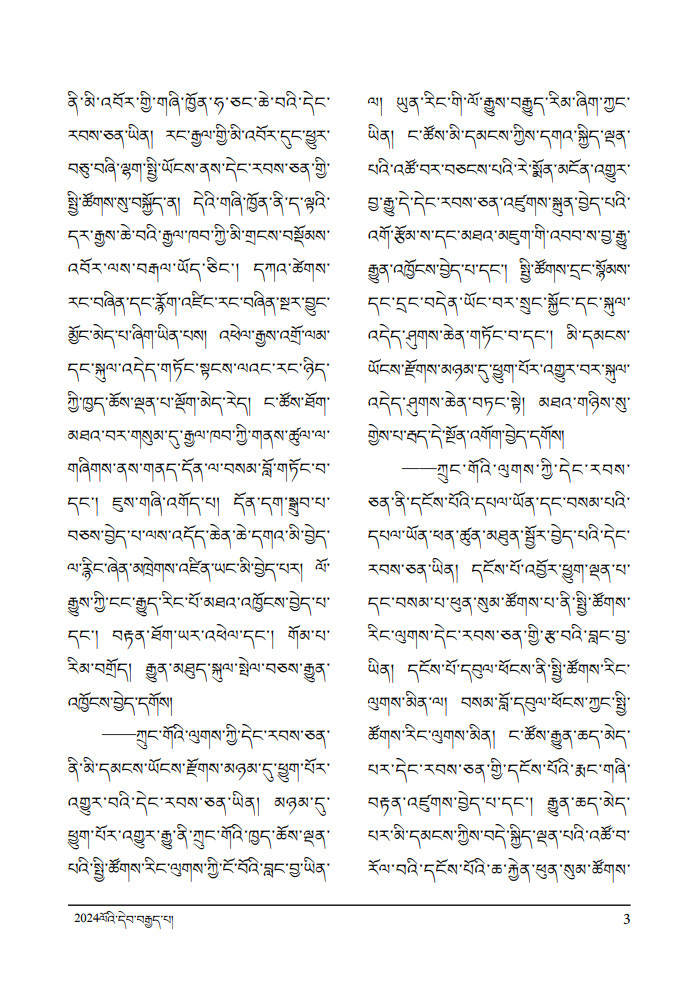 ནི་མི་འབོར་གྱི་གཞི་ཁྱོན་ཧ་ཅང་ཆེ་བའི་དེང་
རབས་ཅན་ཡིན། རང་རྒྱལ་གྱི་མི་འབོར་དུང་ཕྱུར་
བཅུ་བཞི་ལྷག་སྤྱི་ཡོངས་ནས་དེང་རབས་ཅན་གྱི་
སྤྱི་ཚོགས་སུ་བསྐྱོད་ན། དེའི་གཞི་ཁྱོན་ནི་ད་ལྟའི་
དར་རྒྱས་ཆེ་བའི་རྒྱལ་ཁབ་ཀྱི་མི་གྲངས་བསྡོམས་
འབོར་ལས་བརྒལ་ཡོད་ཅིང་། དཀའ་ཚེགས་
རང་བཞིན་དང་རྙོག་འཛིང་རང་བཞིན་སྔར་བྱུང་
མྱོང་མེད་པ་ཞིག་ཡིན་པས། འཕེལ་རྒྱས་འགྲོ་ལམ་
དང་སྐུལ་འདེད་གཏོང་སྟངས་ལའང་རང་ཉིད་
ཀྱི་ཁྱད་ཆོས་ལྡན་པ་ལྡོག་མེད་རེད། ང་ཚོས་ཐོག་
མཐའ་བར་གསུམ་དུ་རྒྱལ་ཁབ་ཀྱི་གནས་ཚུལ་ལ་
གཞིགས་ནས་གནད་དོན་ལ་བསམ་བློ་གཏོང་བ་
དང་། ཇུས་གཞི་འགོད་པ། དོན་དག་སྒྲུབ་པ་
བཅས་བྱེད་པ་ལས་འདོད་ཆེན་ཆེ་དགའ་མི་བྱེད་
ལ་རྙིང་ཞེན་མཁྲེགས་འཛིན་ཡང་མི་བྱེད་པར། ལོ་
རྒྱུས་ཀྱི་ངང་རྒྱུད་རིང་པོ་མཐའ་འཁྱོངས་བྱེད་པ་
དང་། བརྟན་ཐོག་ཡར་འཕེལ་དང་། གོམ་པ་
རིམ་བགྲོད། རྒྱུན་མཐུད་སྐུལ་སྤེལ་བཅས་རྒྱུན་
འཁྱོངས་བྱེད་དགོས།
——ཀྲུང་གོའི་ལུགས་ཀྱི་དེང་རབས་ཅན་
ནི་མི་དམངས་ཡོངས་རྫོགས་མཉམ་དུ་ཕྱུག་པོར་
འགྱུར་བའི་དེང་རབས་ཅན་ཡིན། མཉམ་དུ་
ཕྱུག་པོར་འགྱུར་རྒྱུ་ནི་ཀྲུང་གོའི་ཁྱད་ཆོས་ལྡན་
པའི་སྤྱི་ཚོགས་རིང་ལུགས་ཀྱི་ངོ་བོའི་བླང་བྱ་ཡིན་
ལ། ཡུན་རིང་གི་ལོ་རྒྱུས་བརྒྱུད་རིམ་ཞིག་ཀྱང་
ཡིན། ང་ཚོས་མི་དམངས་ཀྱིས་དགའ་སྐྱིད་ལྡན་
པའི་འཚོ་བར་བཅངས་པའི་རེ་སྨོན་མངོན་འགྱུར་
བྱ་རྒྱུ་དེ་དེང་རབས་ཅན་འཛུགས་སྐྲུན་བྱེད་པའི་
འགོ་རྩོམ་ས་དང་མཐའ་མཇུག་གི་འབབ་ས་བྱ་རྒྱུ་
རྒྱུན་འཁྱོངས་བྱེད་པ་དང་། སྤྱི་ཚོགས་དྲང་སྙོམས་
དང་དྲང་བདེན་ཡོང་བར་སྲུང་སྐྱོང་དང་སྐུལ་
འདེད་ཤུགས་ཆེན་གཏོང་བ་དང་། མི་དམངས་
ཡོངས་རྫོགས་མཉམ་དུ་ཕྱུག་པོར་འགྱུར་བར་སྐུལ་
འདེད་ཤུགས་ཆེན་བཏང་སྟེ། མཐའ་གཉིས་སུ་
གྱེས་པ་རྦད་དེ་སྔོན་འགོག་བྱེད་དགོས།
——ཀྲུང་གོའི་ལུགས་ཀྱི་དེང་རབས་
ཅན་ནི་དངོས་པོའི་དཔལ་ཡོན་དང་བསམ་པའི་
དཔལ་ཡོན་ཕན་ཚུན་མཐུན་སྦྱོར་བྱེད་པའི་དེང་
རབས་ཅན་ཡིན། དངོས་པོ་འབྱོར་ཕྱུག་ལྡན་པ་
དང་བསམ་པ་ཕུན་སུམ་ཚོགས་པ་ནི་སྤྱི་ཚོགས་
རིང་ལུགས་དེང་རབས་ཅན་གྱི་རྩ་བའི་བླང་བྱ་
ཡིན། དངོས་པོ་དབུལ་ཕོངས་ནི་སྤྱི་ཚོགས་རིང་
ལུགས་མིན་ལ། བསམ་བློ་དབུལ་ཕོངས་ཀྱང་སྤྱི་
ཚོགས་རིང་ལུགས་མིན། ང་ཚོས་རྒྱུན་ཆད་མེད་
པར་དེང་རབས་ཅན་གྱི་དངོས་པོའི་རྨང་གཞི་
བརྟན་འཛུགས་བྱེད་པ་དང་། རྒྱུན་ཆད་མེད་
པར་མི་དམངས་ཀྱིས་བདེ་སྐྱིད་ལྡན་པའི་འཚོ་བ་
རོལ་བའི་དངོས་པོའི་ཆ་རྐྱེན་ཕུན་སུམ་ཚོགས་
2024ལོའི་དེབ་བརྒྱད་པ། 3